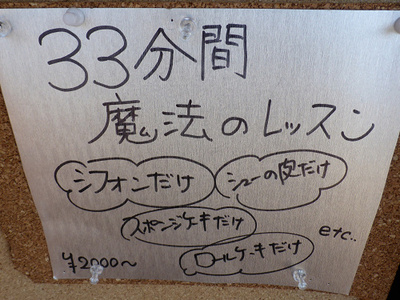 33分間
魔法のレッスン
シフォンだけ
シューの皮だけ
スポンジケーキだけ
etc..
ロールケーキだけ
¥2000〜